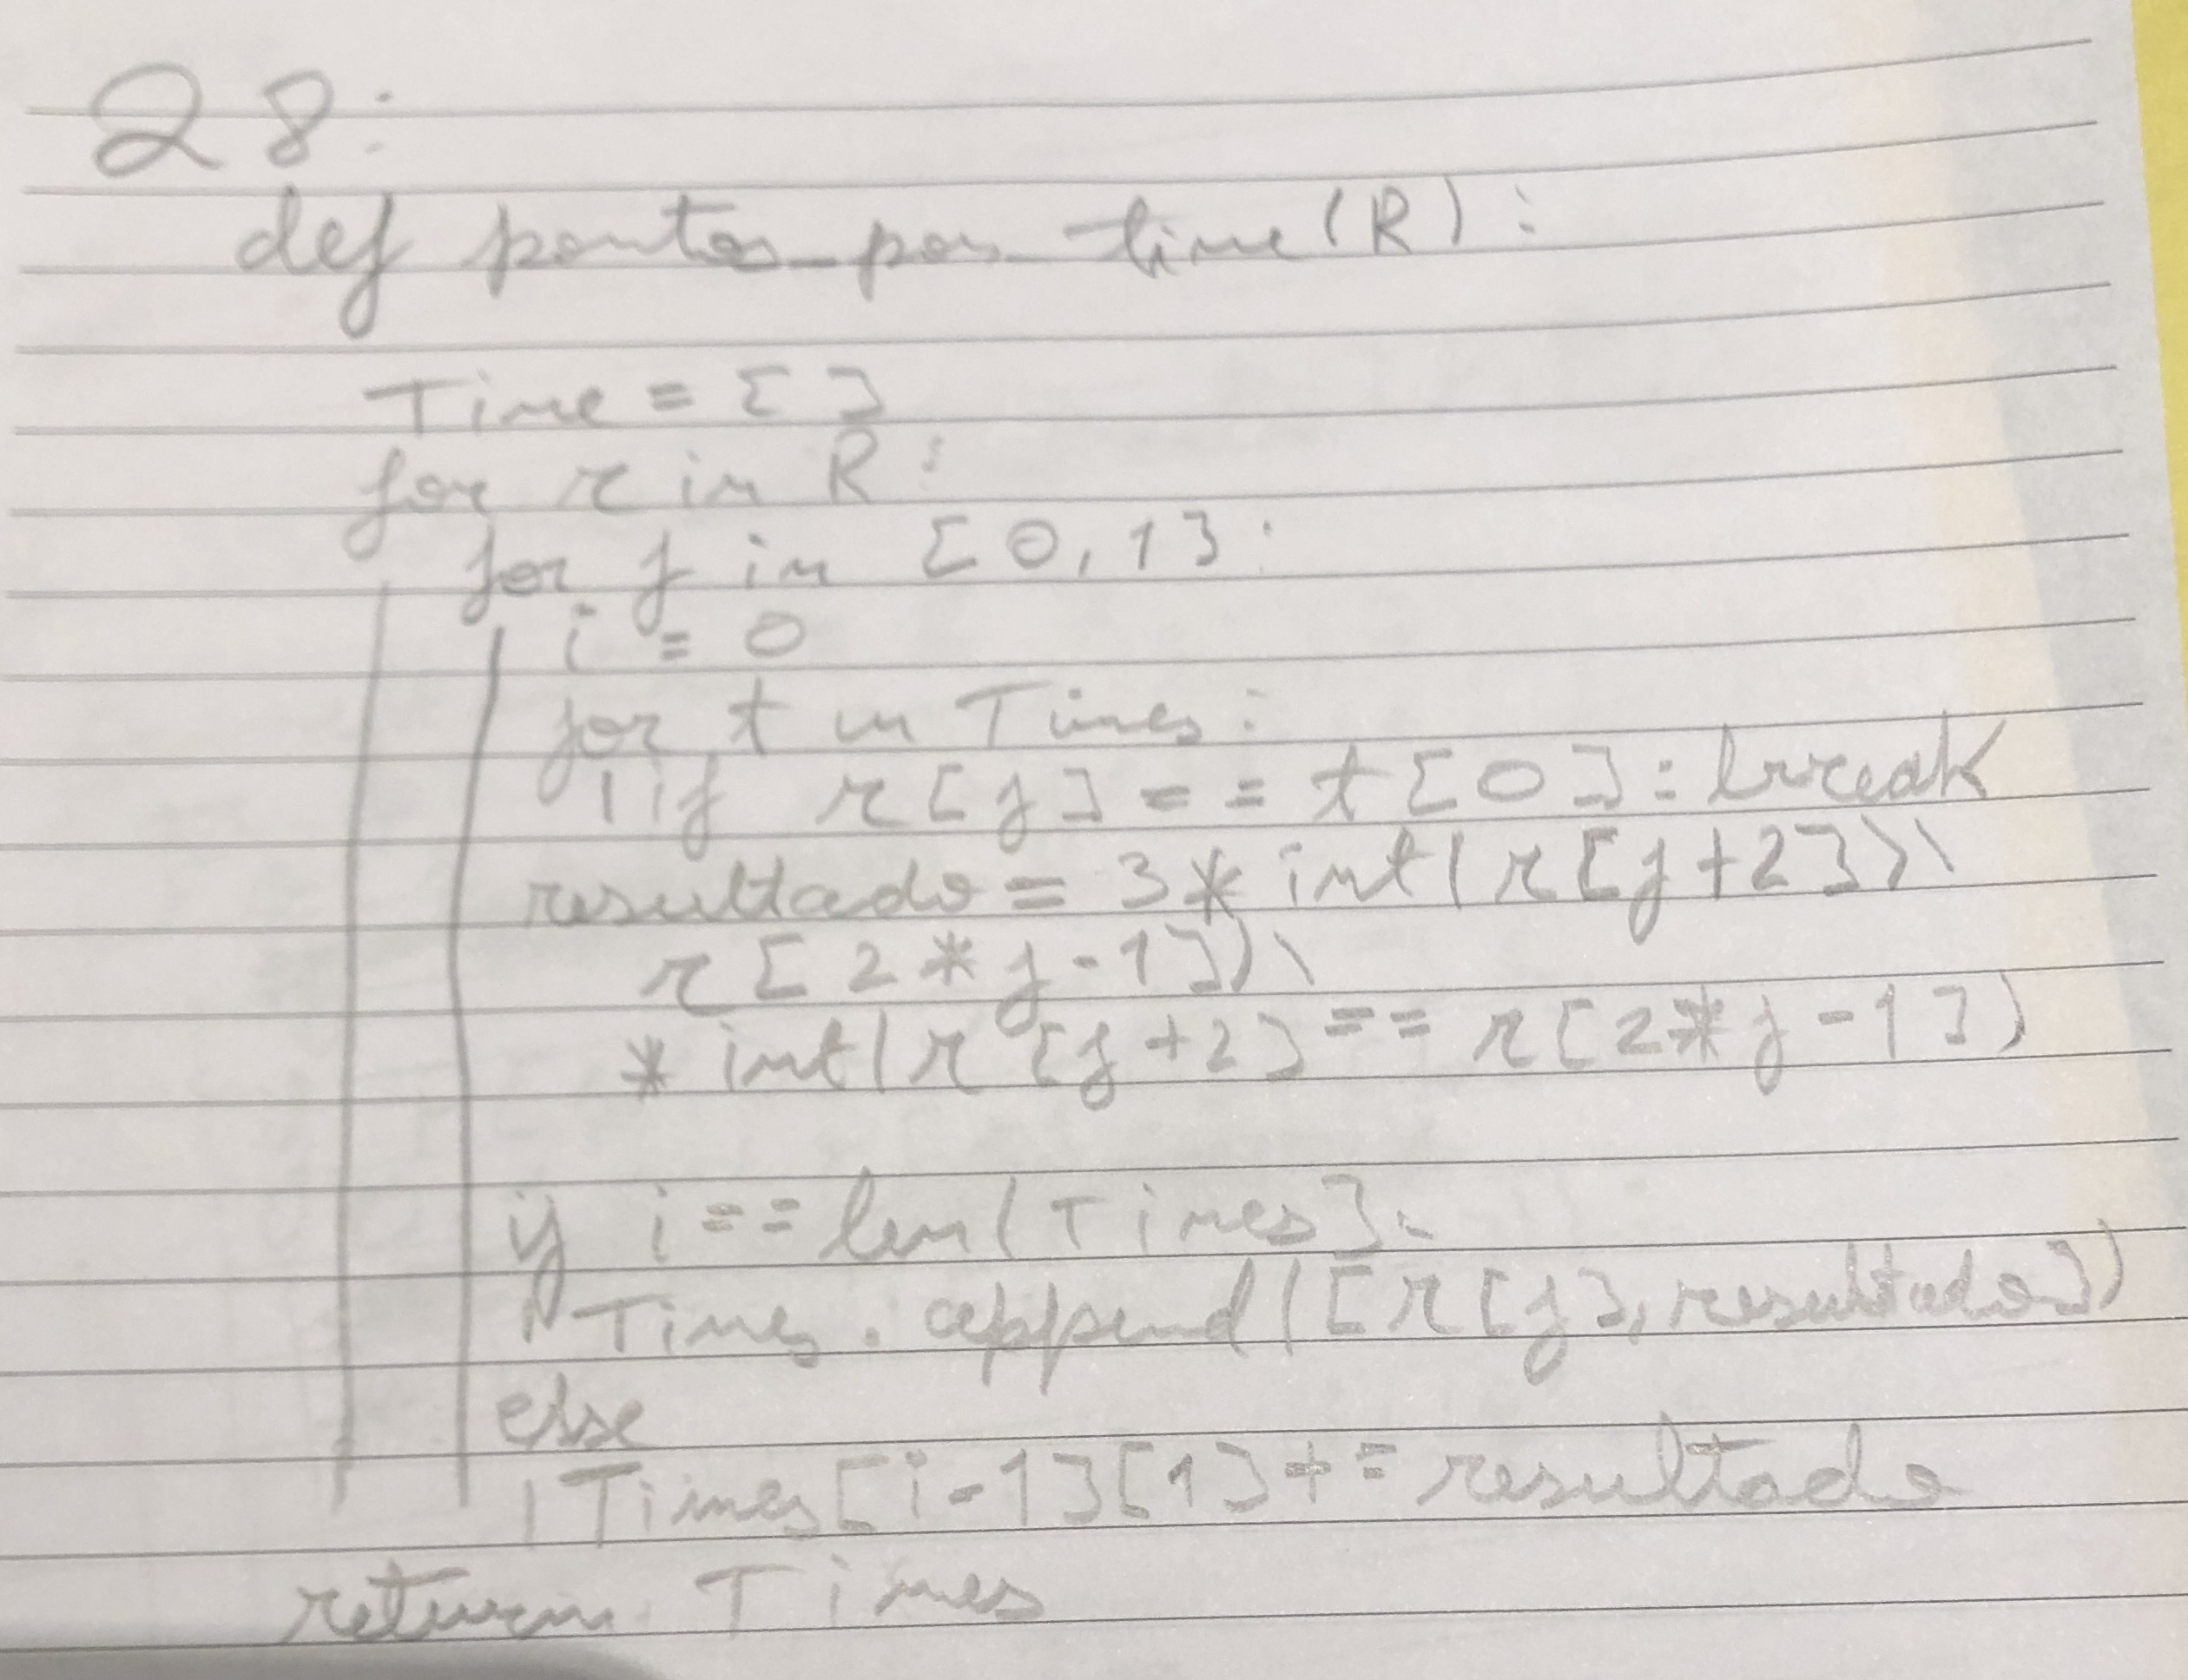 28:
def pontos_por_time(R):
Time = []
for r in R:
for j in [0,1]:
i = 0
for t in Times:
if r[j] == t[0]: break
resultado = 3*int(r[j+2])\
r[2*j-1])\
*int(r[j+2] == r[2*j-1])
if i == len(Times]:
Times.append([r[j], resultado])
else
Times[i-1][1] += resultado
return Times